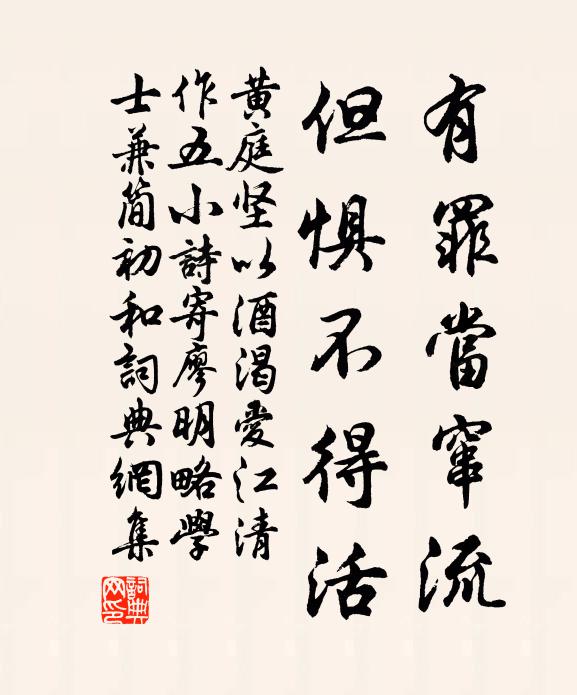 有罪當窜流
但惧不得活
黄庭坚以酒渴愛江清
作五小詩寄廖明略學
士兼简初和詞典網集
詞典网印